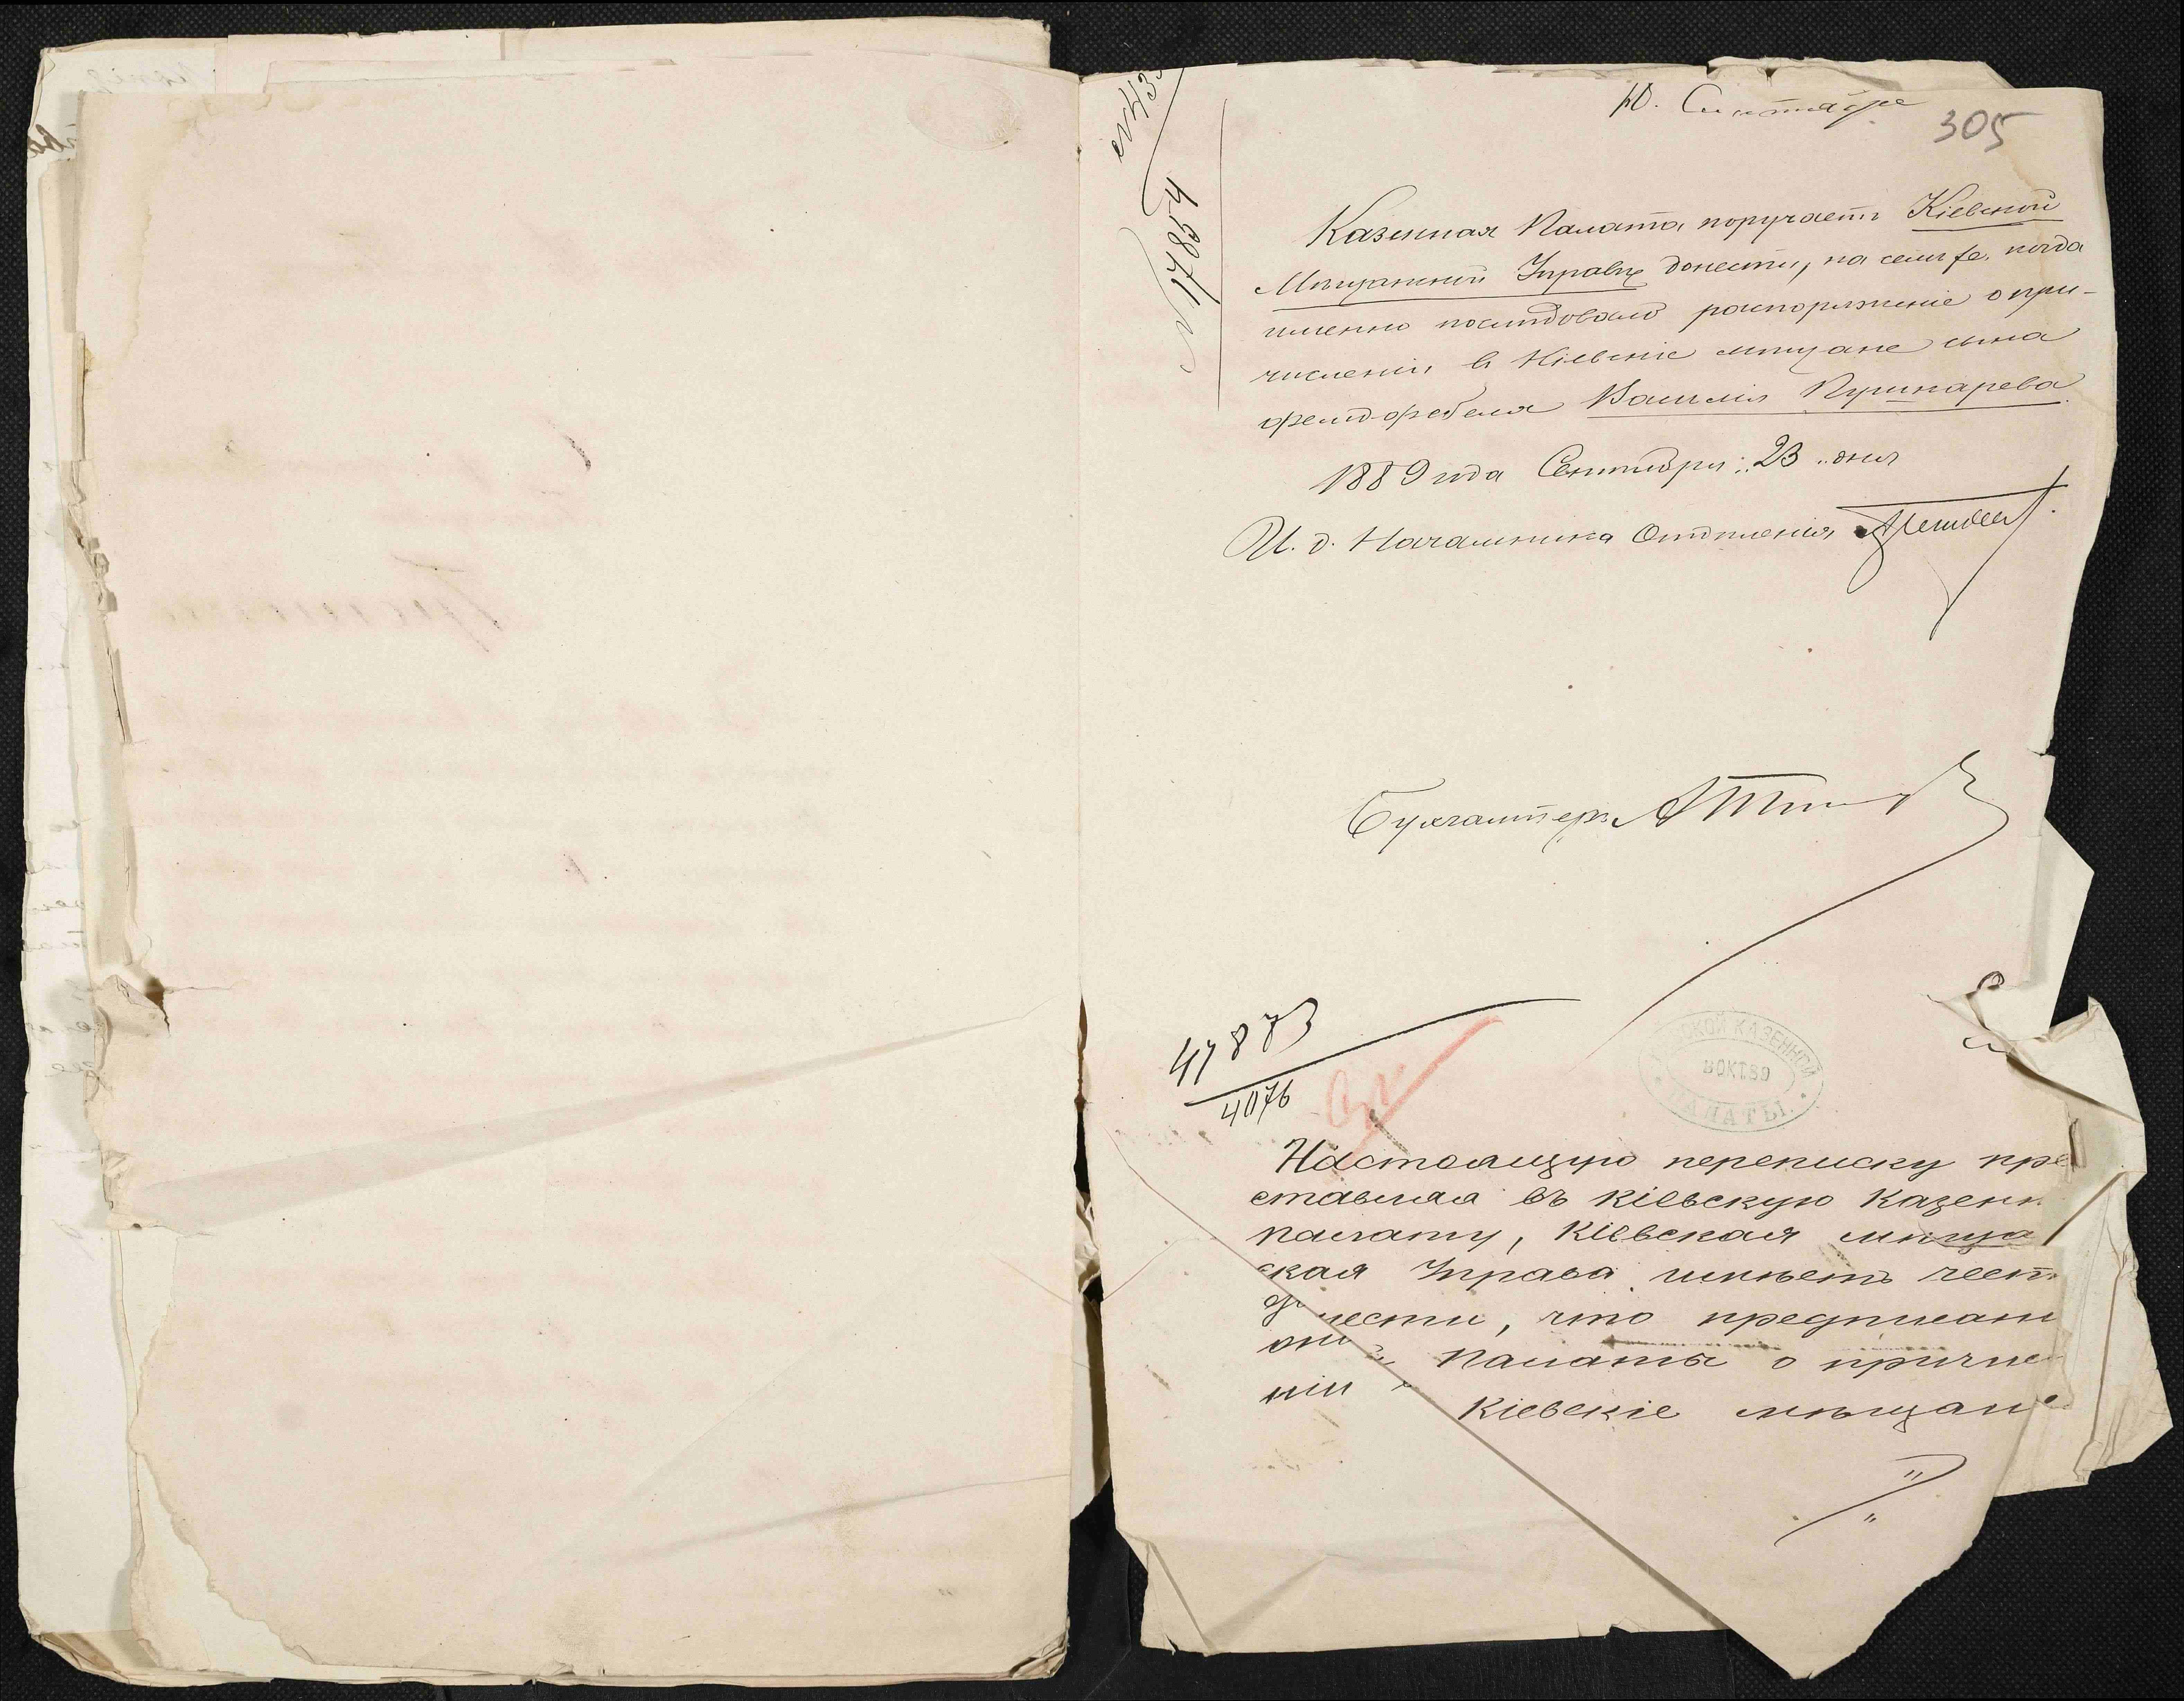 10. Сентября
305
№ 43
№ 17854
Казенная Палата поручаетъ Кіевской
Мѣщанской Управѣ донести, на семъ же, когда
именно послѣдовало распоряженіе о при-
численіи въ Кіевскіе мѣщане сына
фельдфебеля Василія Пушкарева.
1889 года Сентября „23„ дня
И. д. Начальника Отдѣленія
Бухгалтеръ
47873
4076
КОЙ КАЗЕННОЙ
3 ОКТ. 89
ПАЛАТЫ.
Настоящую переписку пре
ставляя въ Кіевскую Казенн
палату, Кіевская мѣща
ская Управа имѣетъ чест
нести, что предписані
Палаты о причис
ніи
Кіевскіе мѣщане